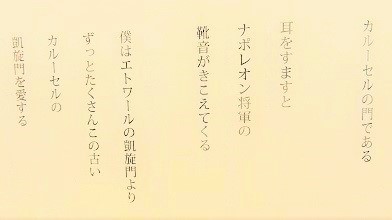 カルーセルの門である
耳をすますと
ナポレオン将軍の
靴音がきこえてくる
僕はエトワールの凱旋門より
ずっとたくさんこの古い
カルーセルの
凱旋門を愛する